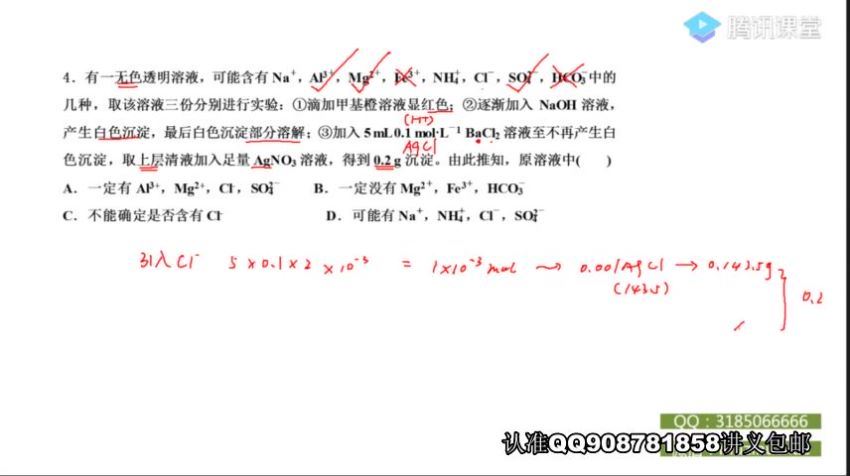 腾讯课堂
4．有一无色透明溶液，可能含有 Na⁺，Al³⁺，Mg²⁺，Fe³⁺，NH₄⁺，Cl⁻，SO₄²⁻，HCO₃⁻中的
几种，取该溶液三份分别进行实验：①滴加甲基橙溶液显红色；②逐渐加入 NaOH 溶液，
(H⁺)
产生白色沉淀，最后白色沉淀部分溶解；③加入 5 mL 0.1 mol·L⁻¹ BaCl₂ 溶液至不再产生白
AgCl
色沉淀，取上层清液加入足量 AgNO₃ 溶液，得到 0.2 g 沉淀。由此推知，原溶液中( )
A．一定有 Al³⁺，Mg²⁺，Cl⁻，SO₄²⁻ B．一定没有 Mg²⁺，Fe³⁺，HCO₃⁻
C．不能确定是否含有 Cl⁻ D．可能有 Na⁺，NH₄⁺，Cl⁻，SO₄²⁻
引入Cl⁻ 5×0.1×2×10⁻³ = 1×10⁻³ mol ~> 0.001AgCl → 0.1435g
(143.5) 0.2
QQ：3185066666
认准QQ908781858讲义包邮